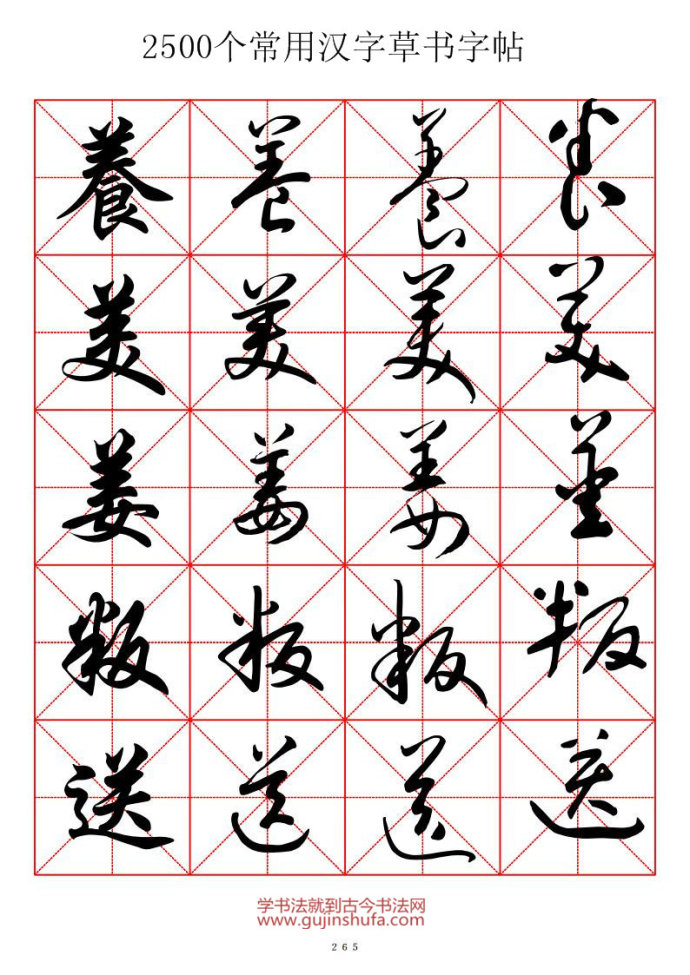 2500个常用汉字草书字帖
養 養 養 養
美 美 美 美
姜 姜 姜 姜
叛 叛 叛 叛
送 送 送 送
学书法就到古今书法网
www.gujinshufa.com
265